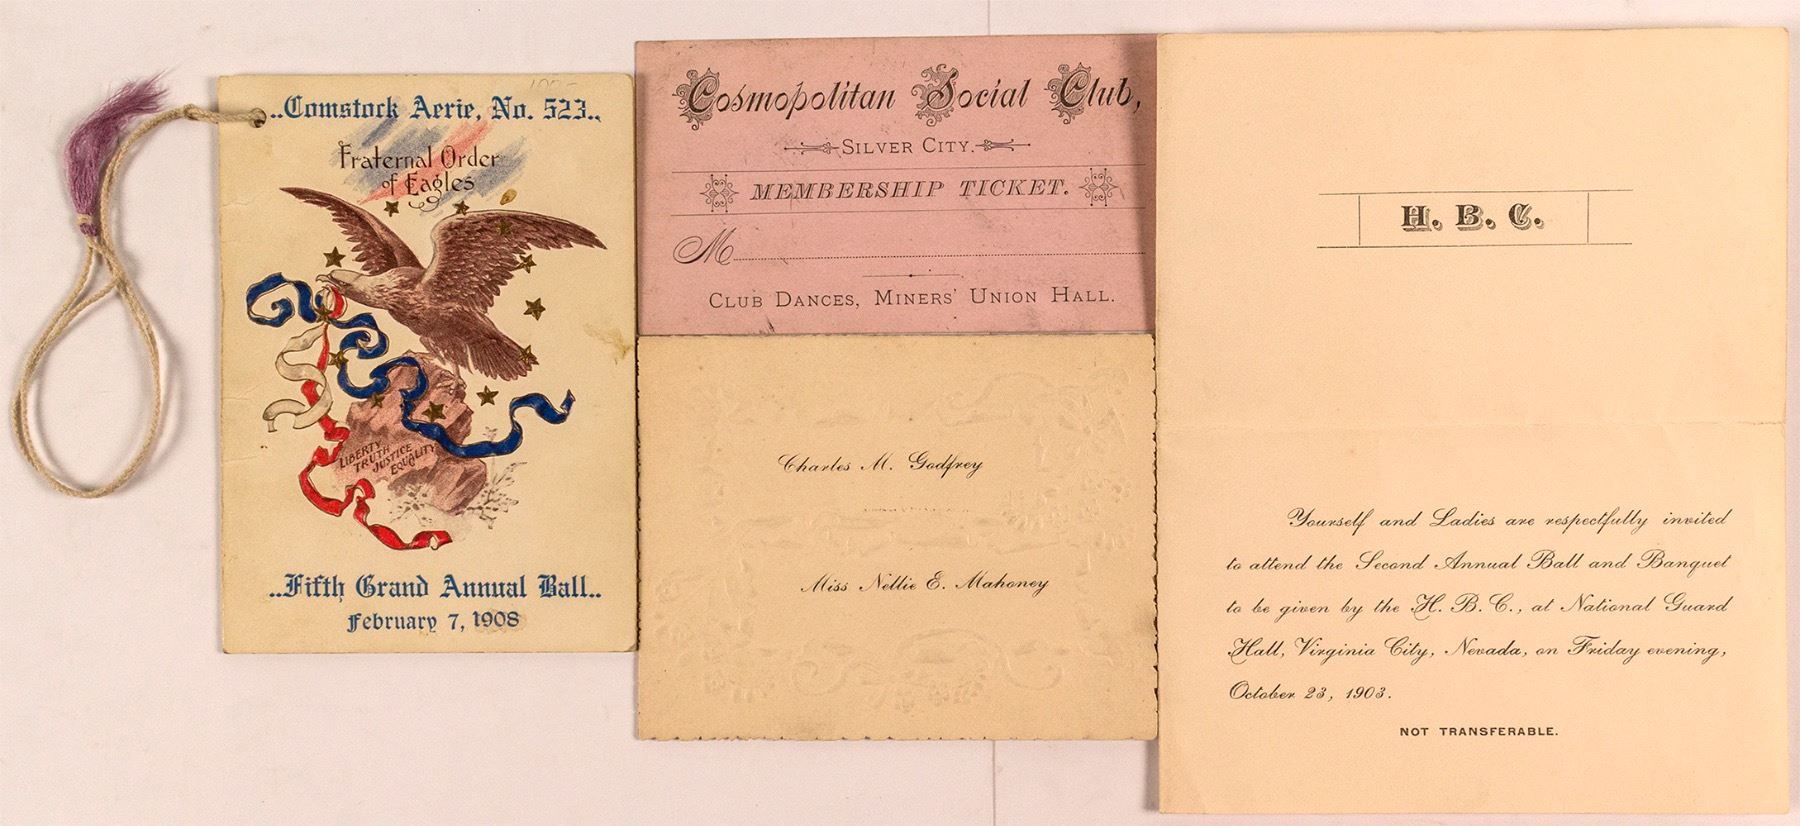 ..Comstock Aerie, No. 523..
Fraternal Order
of Eagles
LIBERTY
TRUTH
JUSTICE
EQUALITY
..Fifth Grand Annual Ball..
February 7, 1908
Cosmopolitan Social Club,
SILVER CITY.
MEMBERSHIP TICKET.
M
CLUB DANCES, MINERS' UNION HALL.
Charles M. Godfrey
Miss Nellie E. Mahoney
H. B. C.
Yourself and Ladies are respectfully invited
to attend the Second Annual Ball and Banquet
to be given by the H. B. C., at National Guard
Hall, Virginia City, Nevada, on Friday evening,
October 23, 1903.
NOT TRANSFERABLE.